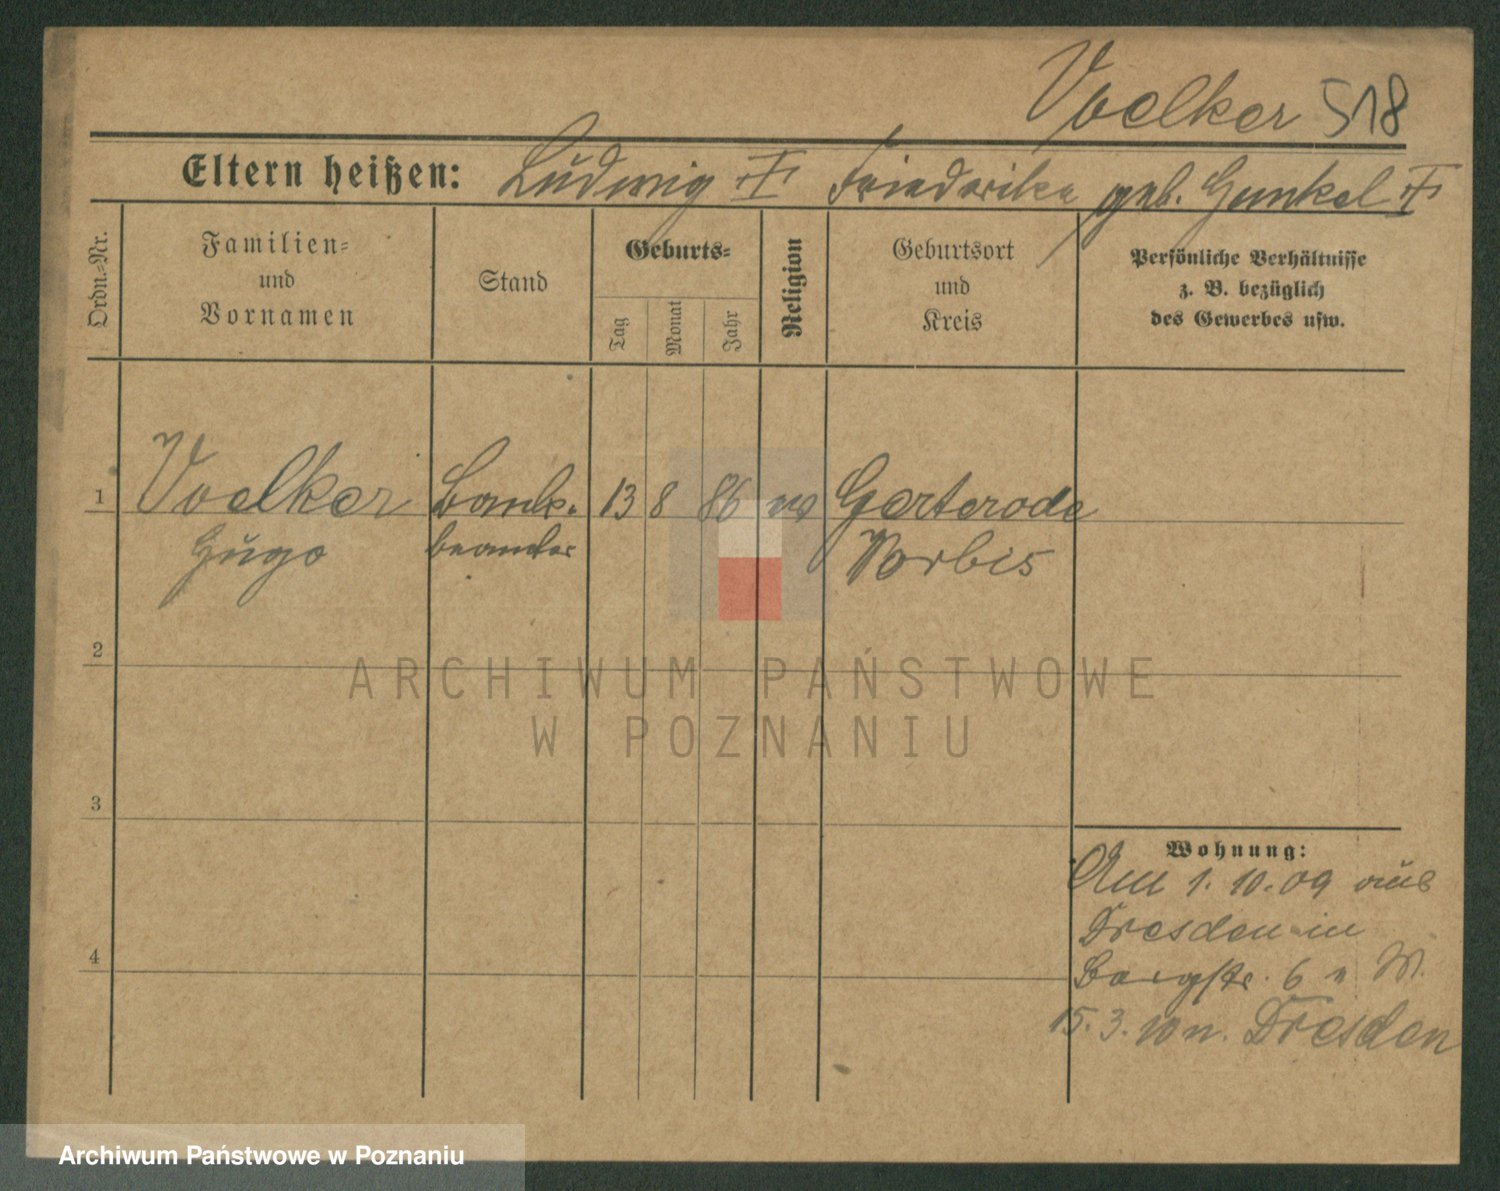 Voelker 518
Eltern heißen: Ludwig † Friederike geb. Gunkel †
Ordn.-Nr.
Familien-
und
Vornamen
Stand
Geburts-
Tag
Monat
Jahr
Religion
Geburtsort
und
Kreis
Persönliche Verhältnisse
z. B. bezüglich
des Gewerbes usw.
1
Voelker
Hugo
Bank-
beamter
13
8
86
Gerterode
Worbis
2
3
4
Wohnung:
Am 1. 10. 09 aus
Dresden in
Bergstr. 6
15. 3. 10 n. Dresden
ARCHIWUM PAŃSTWOWE
W POZNANIU
Archiwum Państwowe w Poznaniu